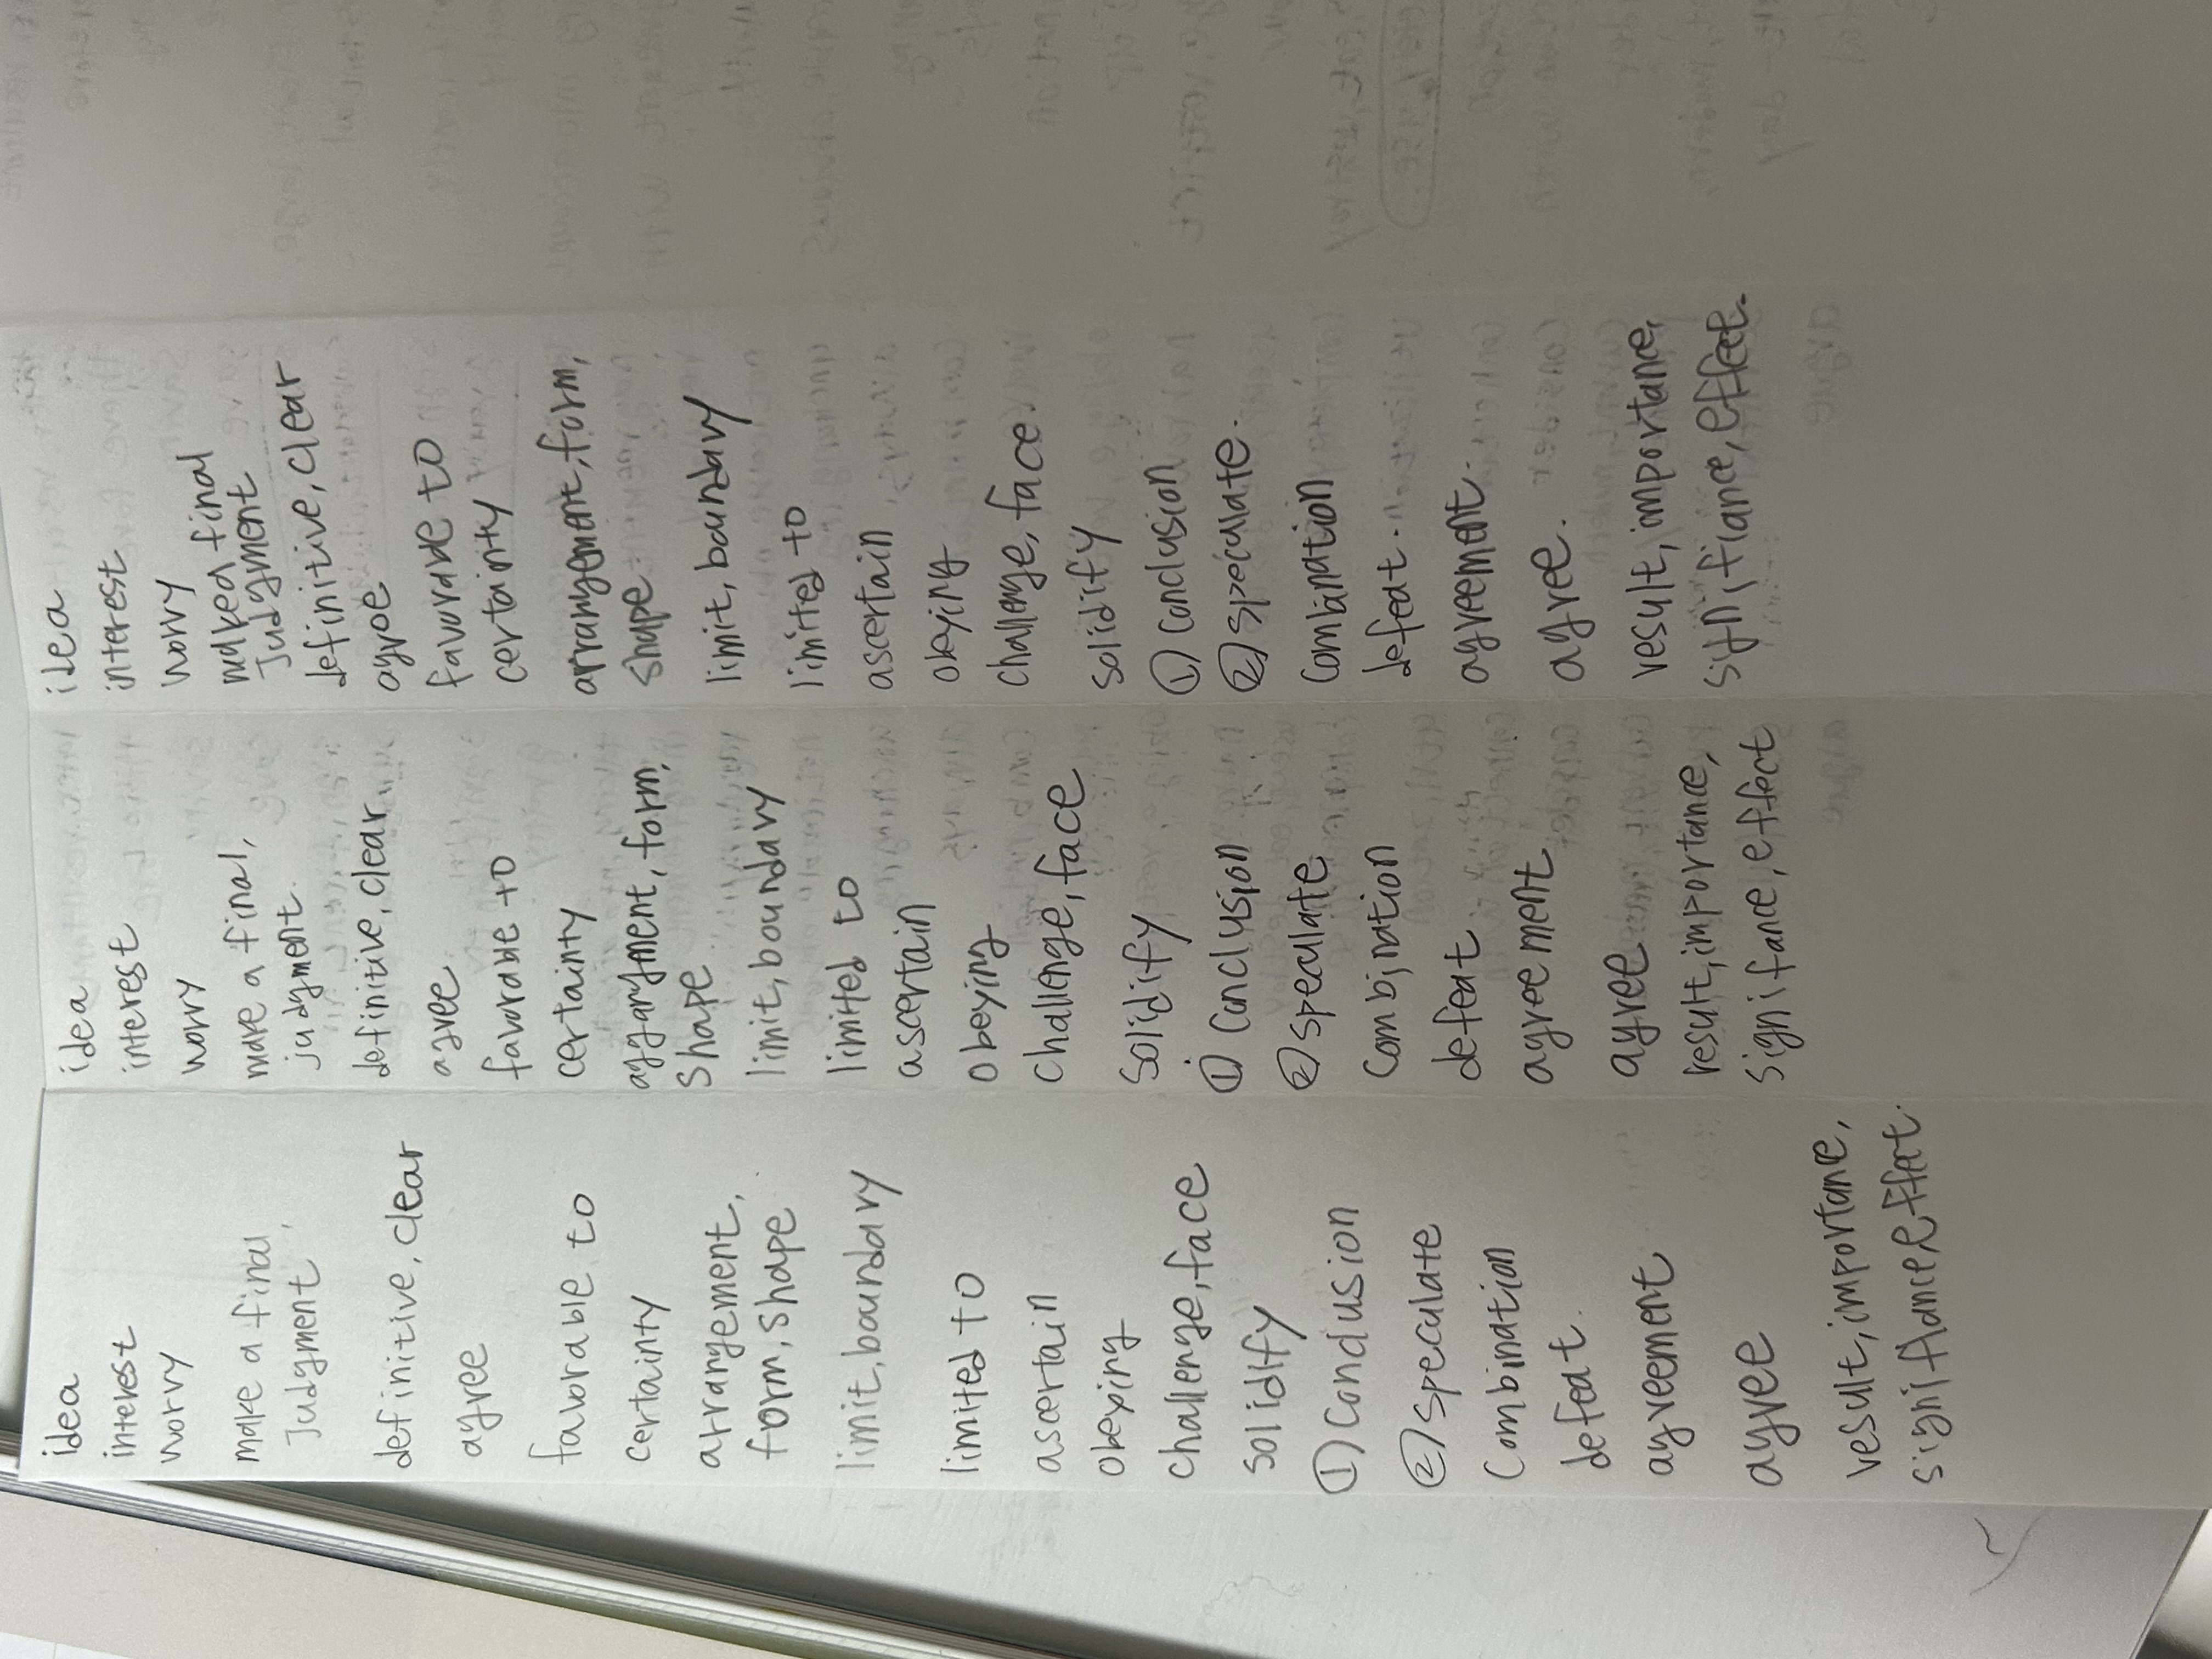 idea
interest
worry
make a final
Judgment.
definitive, clear
agree
favorable to
certainty
arrangement,
form, shape
limit, boundary
limited to
ascertain
obeying
challenge, face
solidify
① conclusion
② speculate
combination
defeat.
agreement
agree
result, importane,
signifiance, effect.
idea
interest
worry
make a final,
judgment.
definitive, clear
agree
favorable to
certainty
aggargment, form,
shape
limit, boundary
limited to
ascertain
obeying
challenge, face
solidify
① conclusion
② speculate
combination
defeat
agreement
agree
result, importance,
signifance, effect
idea
interest
worry
maked final
Judgment
definitive, clear
agree
favorable to
certainty
arrangement, form,
shape
limit, boundary
limited to
ascertain
obeying
challenge, face.
solidify
① conclusion
② speculate.
combination
defeat.
agreement.
agree.
result, importance,
signifiance, effect.